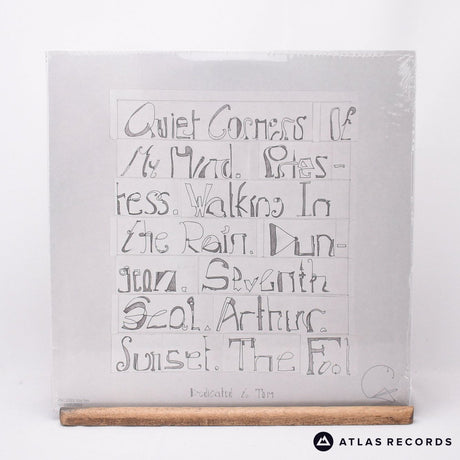 Quiet Corners Of
My Mind. Pries-
tess. Walking In
the Rain. Dun-
geon. Seventh
Seal. Arthur.
Sunset. The Fool
Dedicated to Tom
ATLAS RECORDS